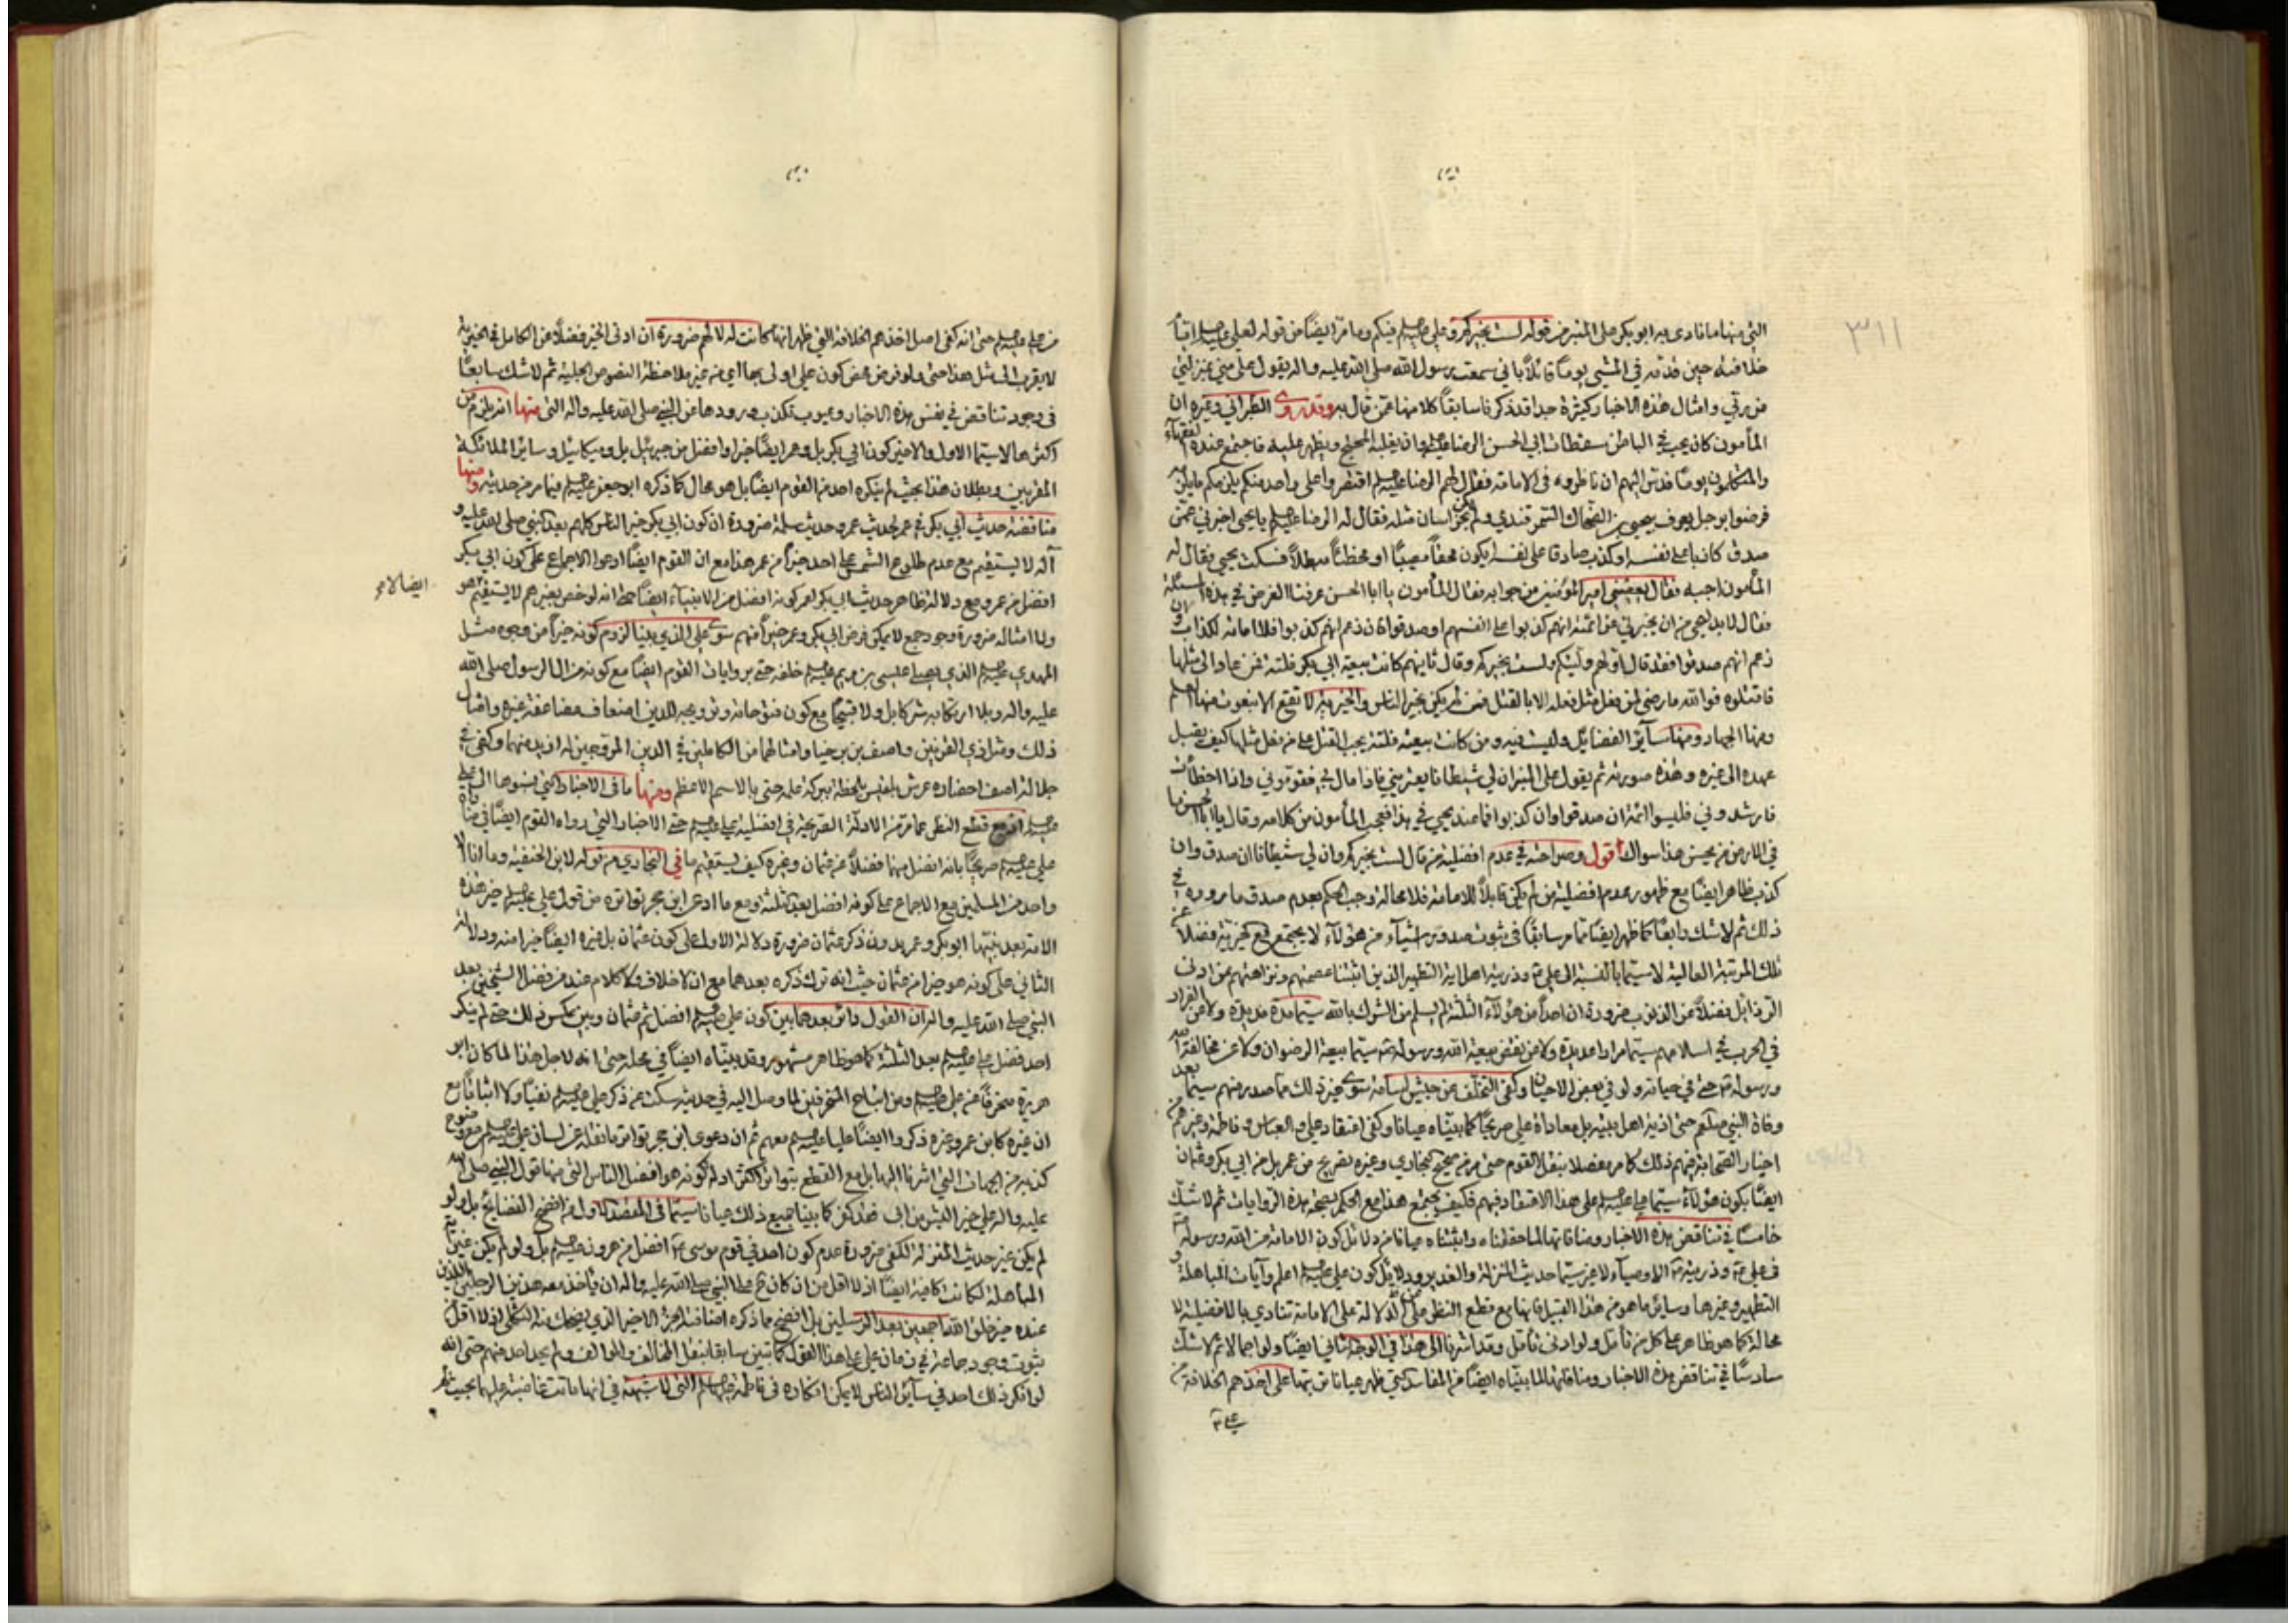 ٣١١
التي منها ما نادى به ابو بكر على المنبر من قوله لست بخيركم وعلي عليه السلم فيكم وما مر ايضا من قوله لعلي عليه السلم
خلافته حين قدمه في المشي يوما قائلا باني سمعت رسول الله صلى الله عليه واله يقول علي مني بمنزلتي
من ربي وامثال هذه الاخبار كثيرة جدا قد ذكرنا سابقا كلا منها عمن قال به وقد روى الطبراني وغيره ان
المأمون كان يحب في الباطن سقطات ابي الحسن الرضا عليه السلم وان يغلبه المحتج ويظهر عليه فاجتمع عنده الفقهاء
والمتكلمون يوما فدس اليهم ان ناظروه في الامامة فقال لهم الرضا عليه السلم اقتصروا على واحد منكم يلزمكم ما يلزمه
فرضوا برجل يعرف بيحيى بن الضحاك السمرقندي ولم يكن بخراسان مثله فقال له الرضا عليه السلم يا يحيى اخبرني عمن
صدق كاذبا على نفسه او كذب صادقا على نفسه ايكون محقا مصيبا او مخطئا مبطلا فسكت يحيى فقال له
المأمون اجبه فقال يعفيني امير المؤمنين من جوابه فقال المأمون يا ابا الحسن عرفنا الغرض في هذه المسئلة
فقال لا بد ليحيى من ان يخبرني عن ائمته انهم كذبوا على انفسهم او صدقوا فان زعم انهم كذبوا فلا امامة لكذاب وان
زعم انهم صدقوا فقد قال اولهم وليتكم ولست بخيركم وقال ثانيهم كانت بيعة ابي بكر فلتة فمن عاد الى مثلها
فاقتلوه فوالله ما رضي لمن فعل مثل فعله الا بالقتل فمن لم يكن بخير الناس والخيرية لا تقع الا بنعوت منها العلم
ومنها الجهاد ومنها سائر الفضائل وليست فيه ومن كانت بيعته فلتة يجب القتل على من فعل مثلها كيف يقبل
عهده الى غيره وهذه صورته ثم يقول على المنبر ان لي شيطانا يعتريني فاذا مال بي فقوموني واذا اخطأت
فارشدوني فليسوا ائمة ان صدقوا وان كذبوا فما عند يحيى في هذا فعجب المأمون من كلامه وقال يا ابا الحسن ما
في الارض من يحسن هذا سواك اقول وصراحته في عدم افضلية من قال لست بخيركم وان لي شيطانا ان صدق وان
كذب ظاهر ايضا مع ظهور عدم افضلية من لم يكن قابلا للامامة فلا محالة وجب الحكم بعدم صدق ما رووه في
ذلك ثم لا شك رابعا كما ظهر ايضا مما مر سابقا في ثبوت صدور اشياء من هؤلاء لا يجتمع مع خيرية فضلا عن
تلك المرتبة العالية لا سيما بالنسبة الى علي وذريته اهل اية التطهير الذين اثبتنا عصمتهم ونزاهتهم عن ادنى
الرذائل فضلا عن الذنوب ضرورة ان احدا من هؤلاء الثلثة لم يسلم من الشرك بالله سيما مدة مديدة ولا من الفرار
في الحرب في اسلامهم سيما مرارا عديدة ولا من نقض بيعة الله ورسوله سيما بيعة الرضوان ولا عن مخالفة الله
ورسوله حتى في حياته ولو في بعض الاحيان وكفى التخلف عن جيش اسامة سوى غير ذلك مما صدر منهم سيما بعد
وفاة النبي صلعم حتى اذية اهل بيته بل معاداة علي صريحا كما بيناه عيانا وكفى اعتقاد علي والعباس وفاطمة وغيرهم
اخيار الصحابة فيهم ذلك كما مر مفصلا بنقل القوم حتى من صحيح البخاري وغيره بصريح من عمر بل من ابي بكر وعثمان
ايضا بكون هؤلاء سيما علي عليه السلم على هذا الاعتقاد فيهم فكيف يجتمع هذا مع الحكم بصحة هذه الروايات ثم لا شك
خامسا في تناقض هذه الاخبار ومنافاتها لما حققناه واثبتناه عيانا من دلائل كون الامامة من الله ورسوله
في علي وذريته الاوصياء لا غير سيما حديث المنزلة والغدير ودلائل كون علي عليه السلم اعلم وآيات المباهلة و
التطهير وغيرها وسائر ما هو من هذا القبيل فانها مع قطع النظر عن الدلالة على الامامة تنادي بالافضلية لا
محالة كما هو ظاهر على كل من تأمل ولو ادنى تأمل وقد اشرنا الى هذا في الوجه الثاني ايضا ولو اجمالا ثم لا شك
سادسا في تناقض هذه الاخبار ومنافاتها لما بيناه ايضا من المفاسد التي ظهر عيانا ترتبها على اخذهم الخلافة من
علي
من علي عليه السلم حتى انه كفى اصل اخذهم الخلافة التي ظهر انها كانت له لا لهم ضرورة ان ادنى الخير فضلا عن الكامل في الخيرية
لا يقرب الى مثل هذا حتى ولو فرض محض كون علي اولى بها اي من غير ملاحظة النصوص الجلية ثم لا شك سابعا
في وجود تناقض في نفس هذه الاخبار وعيوب تكذب ورودها عن النبي صلى الله عليه واله التي منها انه يلزم من
اكثرها لا سيما الاول والاخير كون ابي بكر بل وعمر ايضا خيرا وافضل من جبرئيل بل وميكائيل وسائر الملائكة
المقربين وبطلان هذا بحيث لم ينكره احد من القوم ايضا بل هو محال كما ذكره ابو جعفر عليه السلم فيما مر من حديثه ومنها
مناقضة حديث ابي بكر في عمر لحديث عمر وحديث سلمة ضرورة ان كون ابي بكر خير الناس كلهم بعد النبي صلى الله عليه و
آله لا يستقيم مع عدم طلوع الشمس على احد خيرا من عمر هذا مع ان القوم ايضا ادعوا الاجماع على كون ابي بكر
افضل من عمر ومع دلالة ظاهر حديث ابي بكر لعمر كونه افضل من الانبياء ايضا حتى انه لو خص بغيرهم لا يستقيم هو
ايضا لامر
ولا امثاله ضرورة وجود جمع لا يمكن فرض ابي بكر وعمر خيرا منهم سوى علي الذي بينا لزوم كونه خيرا من وجوه مثل
المهدي عليه السلم الذي يصلي عيسى بن مريم عليه السلم خلفه حتى بروايات القوم ايضا مع كونه من ال الرسول صلى الله
عليه واله وبلا ارتكابه شركا بل ولا قبيحا مع كون فتوحاته وترويجه للدين اضعاف مضاعفة غيره وامثال
ذلك ومثل ذي القرنين واصف بن برخيا وامثالهما من الكاملين في الدين المروجين له ازيد منهما وكفى في
جلالة اصف احضاره عرش بلقيس بلحظة ببركة علمه حتى بالاسم الاعظم ومنها ما في الاخبار التي نسبوها الى علي
عليه السلم فانه مع قطع النظر عما مر من الادلة الصريحة في افضلية علي عليه السلم حتى الاخبار التي رواه القوم ايضا في مناداة
علي عليه السلم صريحا بانه افضل منهما فضلا عن عثمان وغيره كيف يستقيم ما في البخاري من قوله لابن الحنفية وما انا الا
واحد من المسلمين مع الاجماع على كونه افضل بعد الثلثة ومع ما ادعى ابن حجر تواتره من قول علي عليه السلم خير هذه
الامة بعد نبيها ابو بكر وعمر بدون ذكر عثمان ضرورة دلالة الاول على كون عثمان بل غيره ايضا خيرا منه ودلالة
الثاني على كونه هو خيرا من عثمان حيث انه ترك ذكره بعدهما مع ان لا خلاف ولا كلام عند من فضل الشيخين بعد
النبي صلى الله عليه واله ان القول دائر بعدهما بين كون علي عليه السلم افضل ثم عثمان وبين عكس ذلك حتى لم ينكر
احد فضل علي عليه السلم بعد الثلثة كما هو ظاهر مشهور وقد بيناه ايضا في محله حتى انه لاجل هذا لما كان ابو
هريرة منحرفا عن علي عليه السلم ومن اتباع المنحرفين لما وصل اليه في حديثه سكت عن ذكر علي عليه السلم نفيا ولا اثباتا مع
ان غيره كابن عمر وغيره ذكروا ايضا عليا عليه السلم معهم ثم ان دعوى ابن حجر تواتر ما نقله عن لسان علي عليه السلم مع وضوح
كذبه من الجهات التي اشرنا اليها بل مع القطع بتواتر اكثر ادلة كونه هو افضل الناس التي منها قول النبي صلى الله
عليه واله علي خير البشر من ابى فقد كفر كما بينا جميع ذلك عيانا سيما في المقصد الاول من افضح الفضايح بل ولو
لم يكن غير حديث المنزلة لكفى ضرورة عدم كون احد في قوم موسى افضل من هرون عليه السلم بل ولو لم يكن غير آية
المباهلة لكانت كافية ايضا اذ لا اقل من ان كان على النبي صلى الله عليه واله ان يأخذ معه هذين الرجلين اللذين
عنده خير خلق الله اجمعين بعد المرسلين بل افضح مما ذكره اضافته الجزء الاخير الذي يضحك منه الثكلى اذ لا اقل
بثبوت وجود جماعة في زمان علي على هذا القول كما تبين سابقا بنقل المخالف والموالف ولم يحد احد منهم حتى انه
لو انكر ذلك احد في سائر الناس لا يمكن انكاره في فاطمة عليها السلم التي لا شبهة في انها ماتت غاضبة عليهما بحيث لم